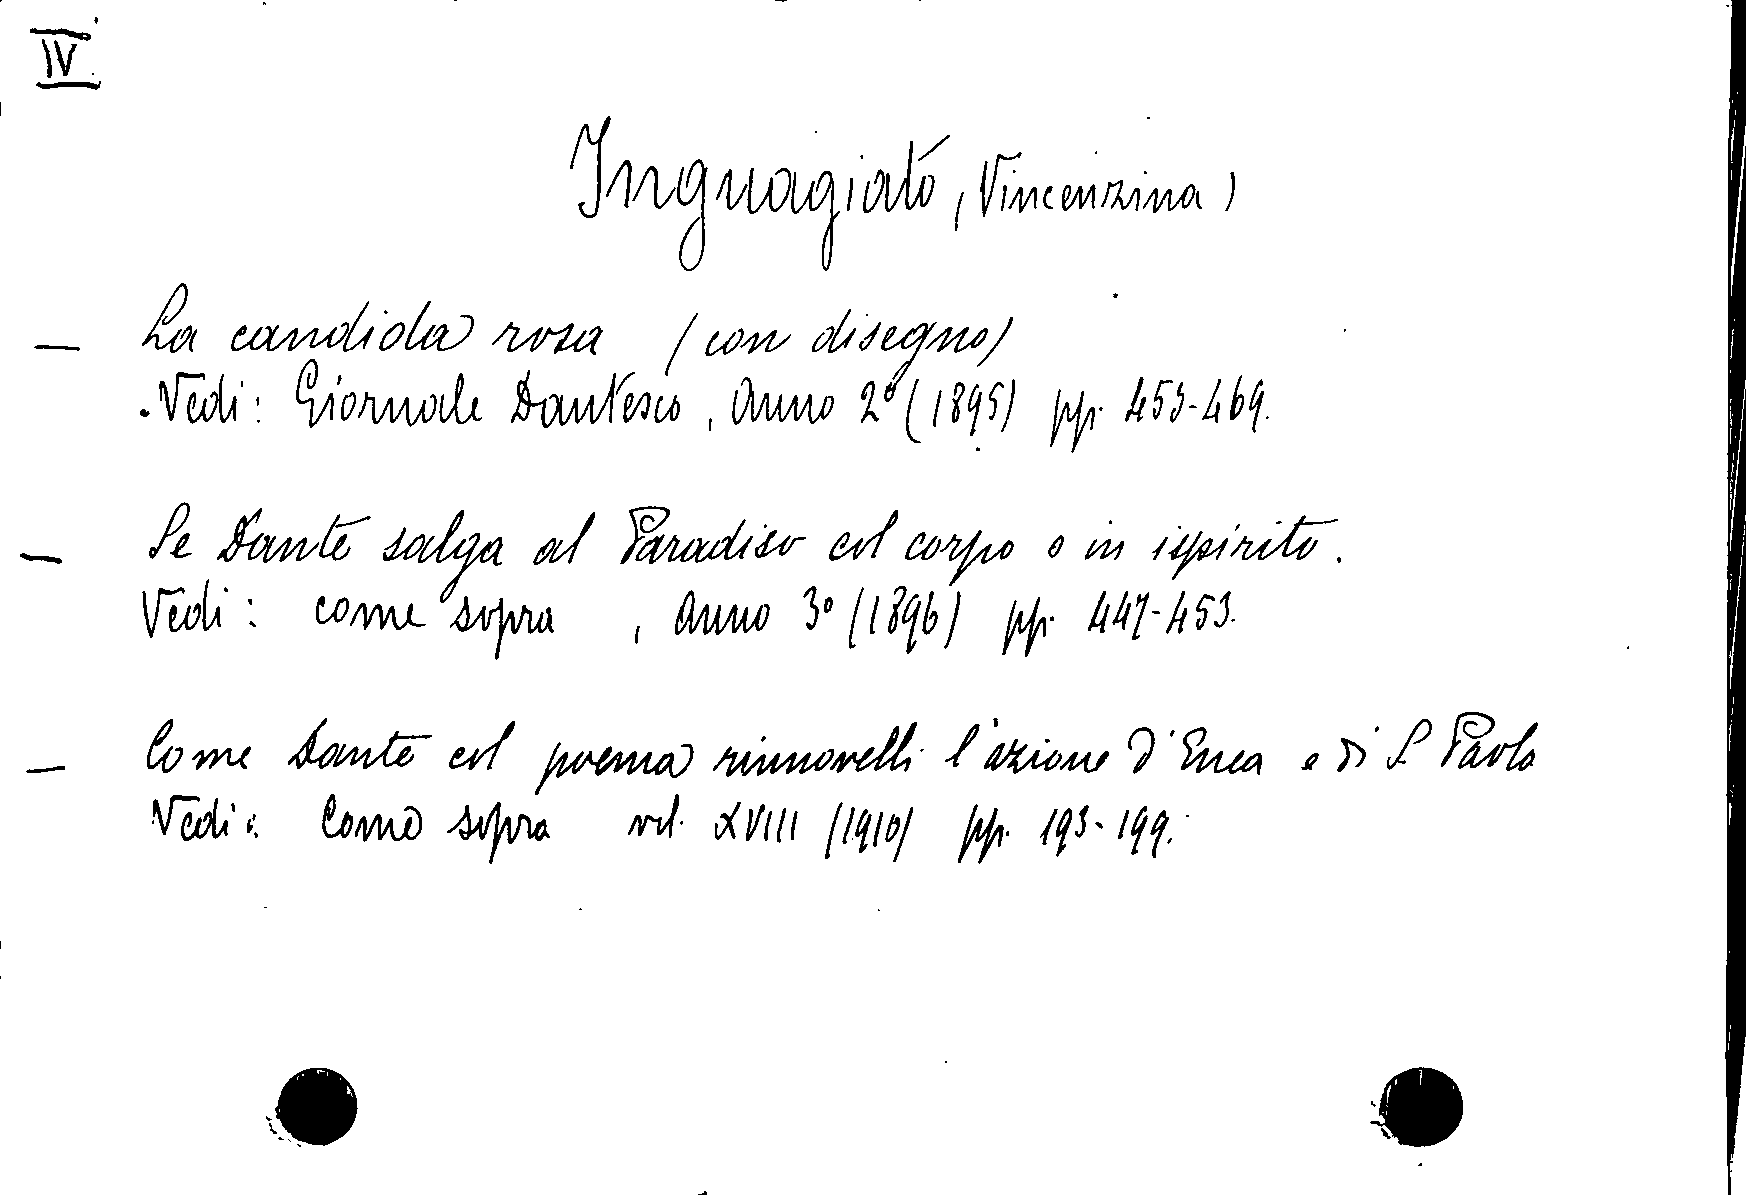 IV
Inguagiato, Vincenzina)
— La candida rosa (con disegno)
Vedi: Giornale Dantesco, Anno 2º (1895) pp. 453-469.
— Se Dante salga al Paradiso col corpo o in ispirito.
Vedi: come sopra, Anno 3º (1896) pp. 447-453.
— Come Dante col poema rinnovelli l'azione d'Enea e di S. Paolo
Vedi: Come sopra vol. XVIII (1910) pp. 193-199.